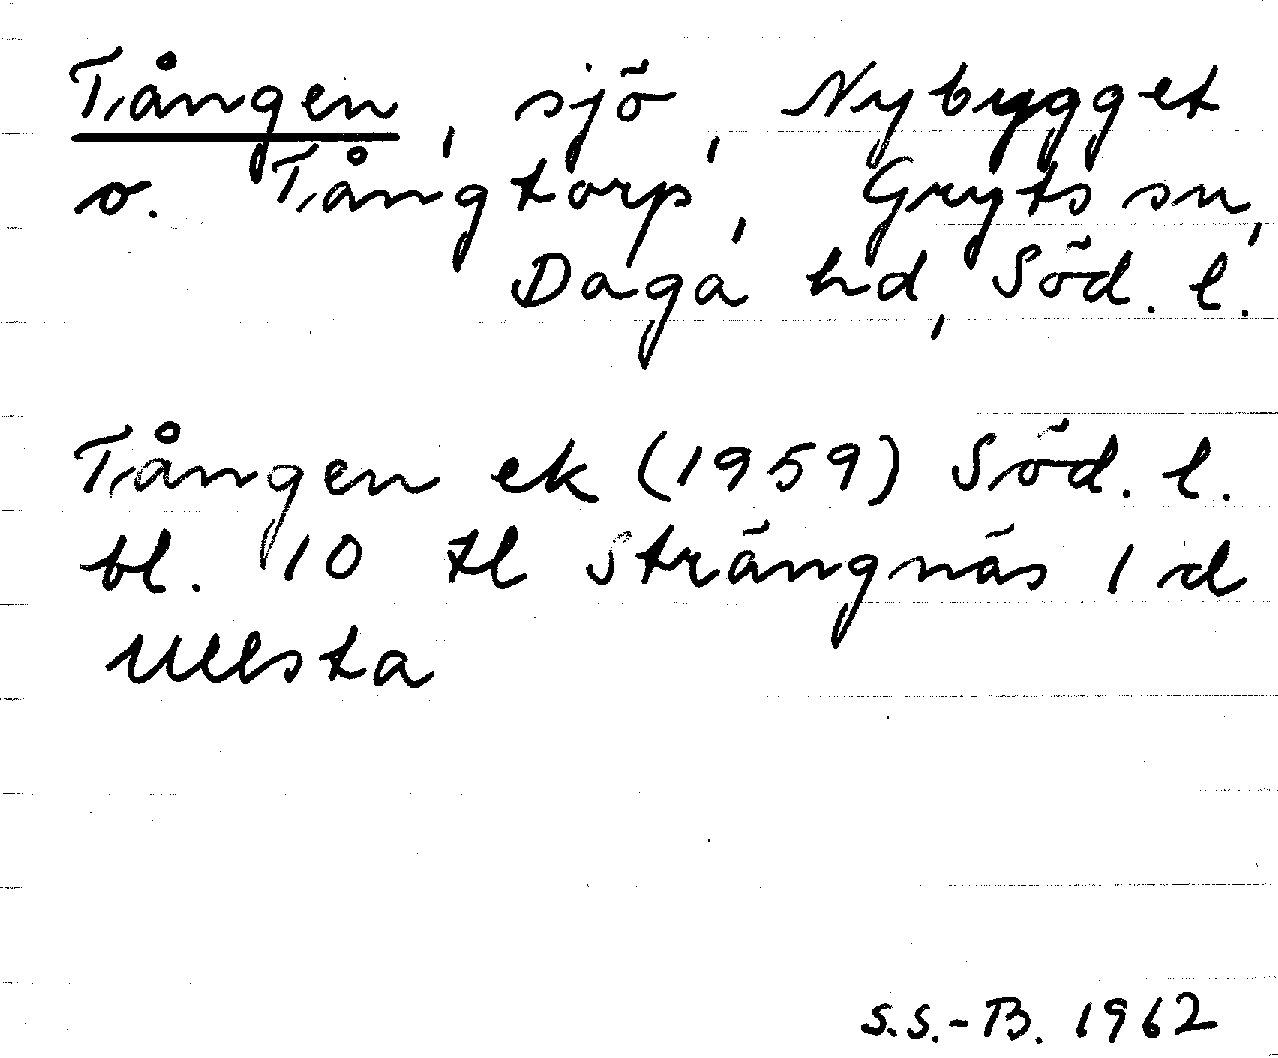 Tången, sjö, Nybygget
o. Tångtorp, Gryts sn,
Daga hd, Söd. l.
Tången ek (1959) Söd. l.
bl. 10 tl Strängnäs 1 d
Ullsta
S.S.-B. 1962